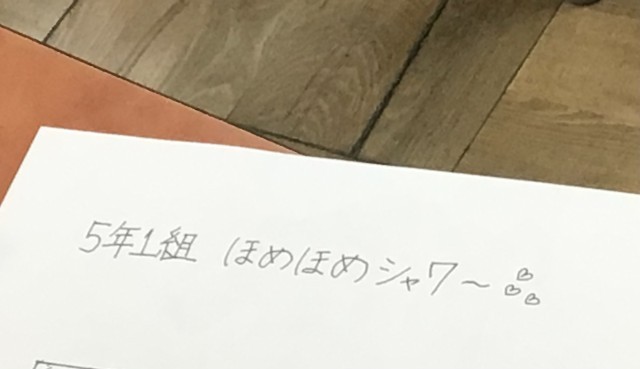 5年1組 ほめほめシャワ～♡♡♡